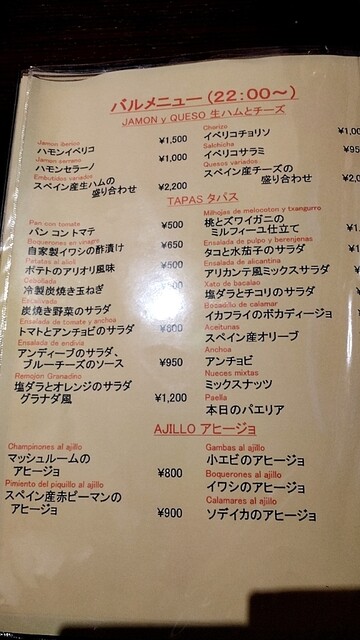 バルメニュー(22:00〜)
JAMON y QUESO 生ハムとチーズ
Jamon iberico
ハモンイベリコ ¥1,500
Jamon serrano
ハモンセラーノ ¥1,000
Embutidos variados
スペイン産生ハムの
盛り合わせ ¥2,200
Chorizo
イベリコチョリソ
Salchicha
イベリコサラミ
Quesos variados
スペイン産チーズの
盛り合わせ
TAPAS タパス
Pan con tomate
パン コントマテ ¥500
Boquerones en vinagre
自家製イワシの酢漬け ¥650
Patatas al alioli
ポテトのアリオリ風味 ¥500
Cebollada
冷製炭焼き玉ねぎ
Escalivada
炭焼き野菜のサラダ
Ensalada de tomate y anchoa
トマトとアンチョビのサラダ
Ensalada de endivia
アンディーブのサラダ、
ブルーチーズのソース ¥950
Remojon Granadino
塩ダラとオレンジのサラダ
グラナダ風 ¥1,200
Milhojas de melocoton y txangurro
桃とズワイガニの
ミルフィーユ仕立て
Ensalada de pulpo y berenjenas
タコと水茄子のサラダ
Ensalada de alicantina
アリカンテ風ミックスサラダ
Xato de bacalao
塩ダラとチコリのサラダ
Bocadillo de calamar
イカフライのボカディージョ
Aceitunas
スペイン産オリーブ
Anchoa
アンチョビ
Nueces mixtas
ミックスナッツ
Paella
本日のパエリア
AJILLO アヒージョ
Champinones al ajillo
マッシュルームの
アヒージョ ¥800
Pimiento del piquillo al ajillo
スペイン産赤ピーマンの
アヒージョ ¥900
Gambas al ajillo
小エビのアヒージョ
Boquerones al ajillo
イワシのアヒージョ
Calamares al ajillo
ソデイカのアヒージョ